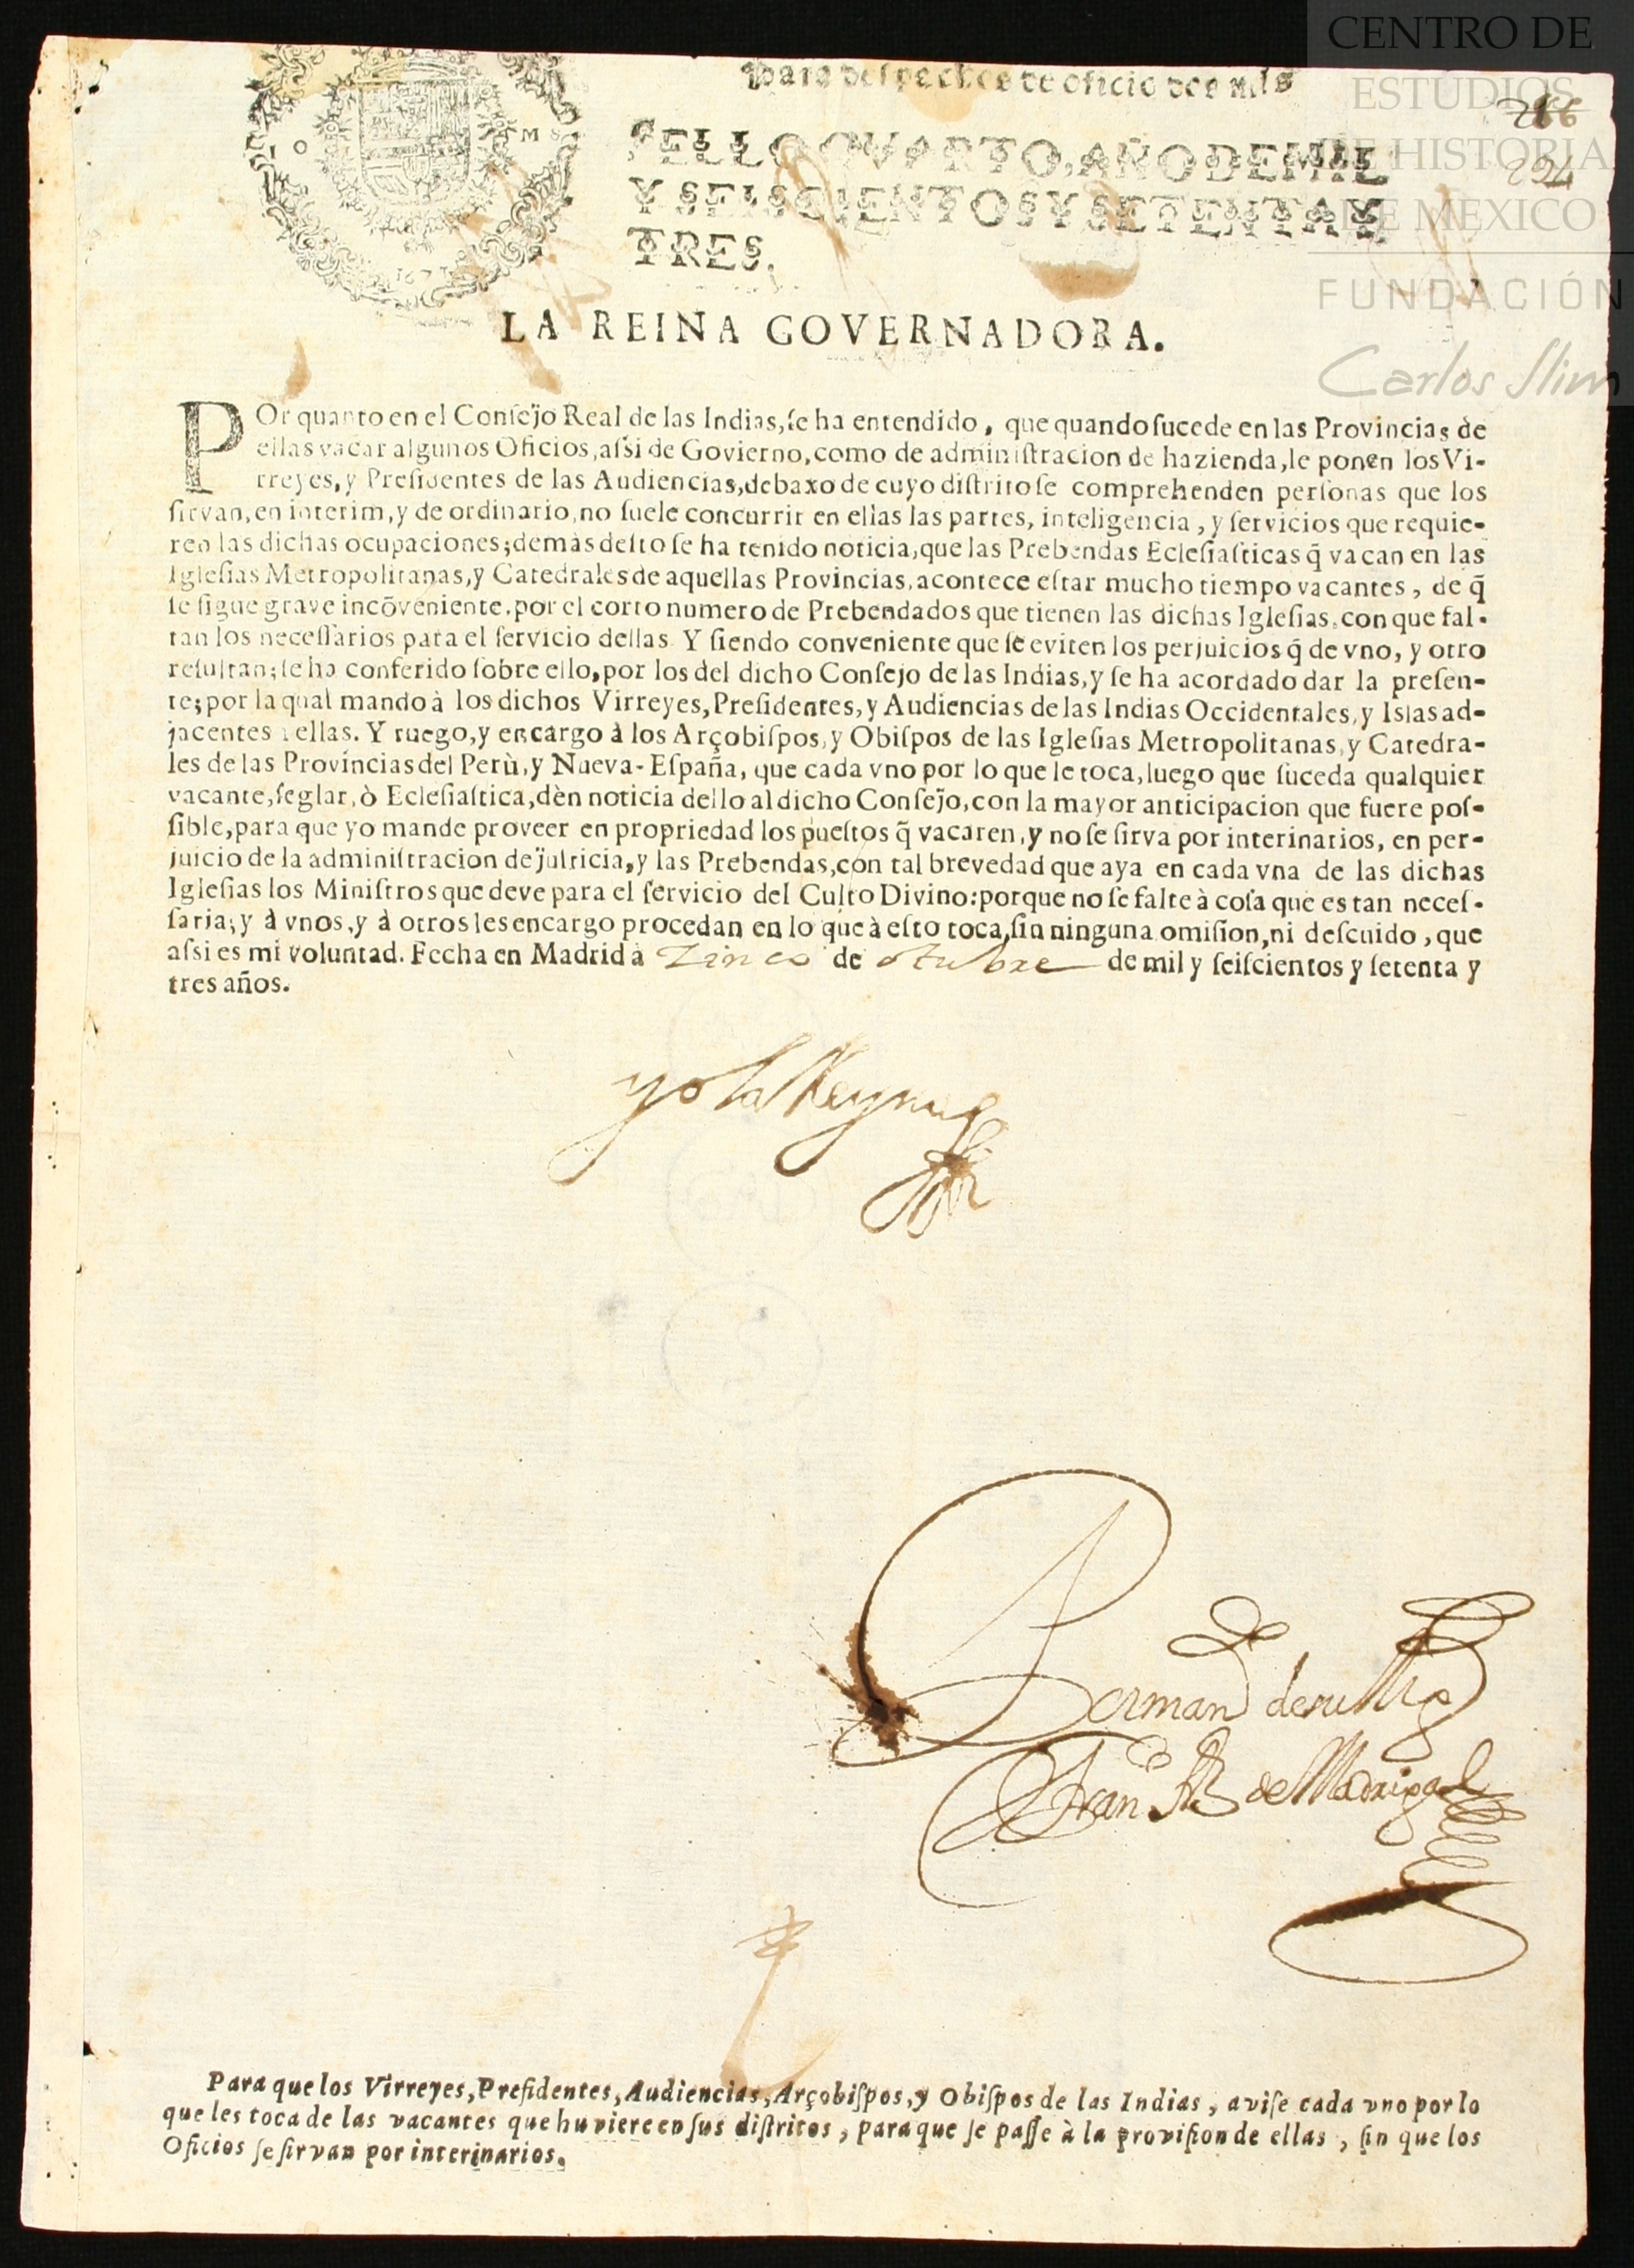 CENTRO DE
ESTUDIOS
DE HISTORIA
DE MEXICO
FUNDACIÓN
Carlos Slim
294
Para despachos de oficio dos mrs
SELLO QVARTO, AÑO DE MIL
Y SEISCIENTOS Y SETENTA Y
TRES.
LA REINA GOVERNADORA.
POr quanto en el Conſejo Real de las Indias, ſe ha entendido, que quando ſucede en las Provincias de
ellas vacar algunos Oficios, aſsi de Govierno, como de adminiſtracion de hazienda, le ponen los Vi-
rreyes, y Preſidentes de las Audiencias, debaxo de cuyo diſtrito ſe comprehenden perſonas que los
ſirvan, en interim, y de ordinario, no ſuele concurrir en ellas las partes, inteligencia, y ſervicios que requie-
ren las dichas ocupaciones; demàs deſto ſe ha tenido noticia, que las Prebendas Ecleſiaſticas q̃ vacan en las
Igleſias Metropolitanas, y Catedrales de aquellas Provincias, acontece eſtar mucho tiempo vacantes, de q̃
ſe ſigue grave incõveniente, por el corto numero de Prebendados que tienen las dichas Igleſias, con que fal-
tan los neceſſarios para el ſervicio dellas. Y ſiendo conveniente que ſe eviten los perjuicios q̃ de vno, y otro
reſultan; ſe ha conferido ſobre ello, por los del dicho Conſejo de las Indias, y ſe ha acordado dar la preſen-
te; por la qual mando à los dichos Virreyes, Preſidentes, y Audiencias de las Indias Occidentales, y Islas ad-
jacentes à ellas. Y ruego, y encargo à los Arçobiſpos, y Obiſpos de las Igleſias Metropolitanas, y Catedra-
les de las Provincias del Perù, y Nueva-Eſpaña, que cada vno por lo que le toca, luego que ſuceda qualquier
vacante, ſeglar, ò Ecleſiaſtica, dèn noticia dello al dicho Conſejo, con la mayor anticipacion que fuere poſ-
ſible, para que yo mande proveer en propriedad los pueſtos q̃ vacaren, y no ſe ſirva por interinarios, en per-
juicio de la adminiſtracion de juſticia, y las Prebendas, con tal brevedad que aya en cada vna de las dichas
Igleſias los Miniſtros que deve para el ſervicio del Culto Divino: porque no ſe falte à coſa que es tan neceſ-
ſaria; y à vnos, y à otros les encargo procedan en lo que à eſto toca, ſin ninguna omiſion, ni deſcuido, que
aſsi es mi voluntad. Fecha en Madrid à Zinco de otubre de mil y ſeiſcientos y ſetenta y
tres años.
yo la Reyna
Fran.co de Madrigal
Para que los Virreyes, Preſidentes, Audiencias, Arçobiſpos, y Obiſpos de las Indias, aviſe cada vno por lo
que les toca de las vacantes que huviere en ſus diſtritos, para que ſe paſſe à la proviſion de ellas, ſin que los
Oficios ſe ſirvan por interinarios.